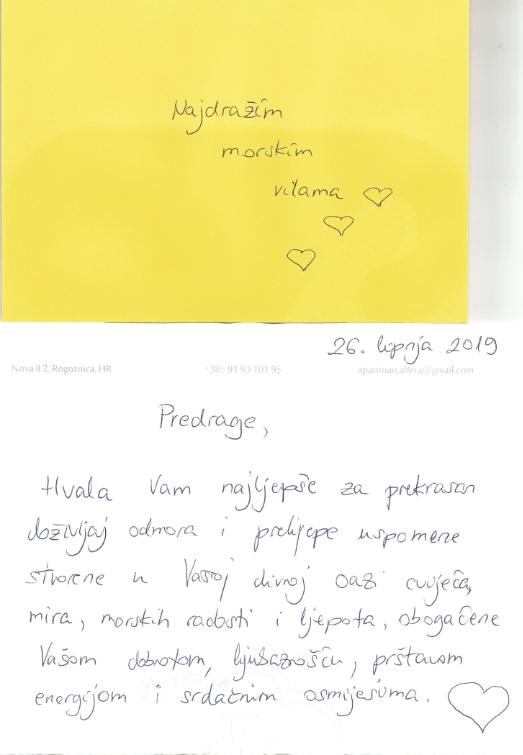 Najdražim
morskim
vilama
26. lipnja 2019
Nova II 2, Rogoznica, HR +385 91 93 101 95 apartman.allera@gmail.com
Predrage,
Hvala Vam najljepše za prekrasan
doživljaj odmora i prelijepe uspomene
stvorene u Vašoj divnoj oazi cvijeća,
mira, morskih radosti i ljepota, obogaćene
Vašom dobrotom, ljubaznošću, prštavom
energijom i srdačnim osmijesima.